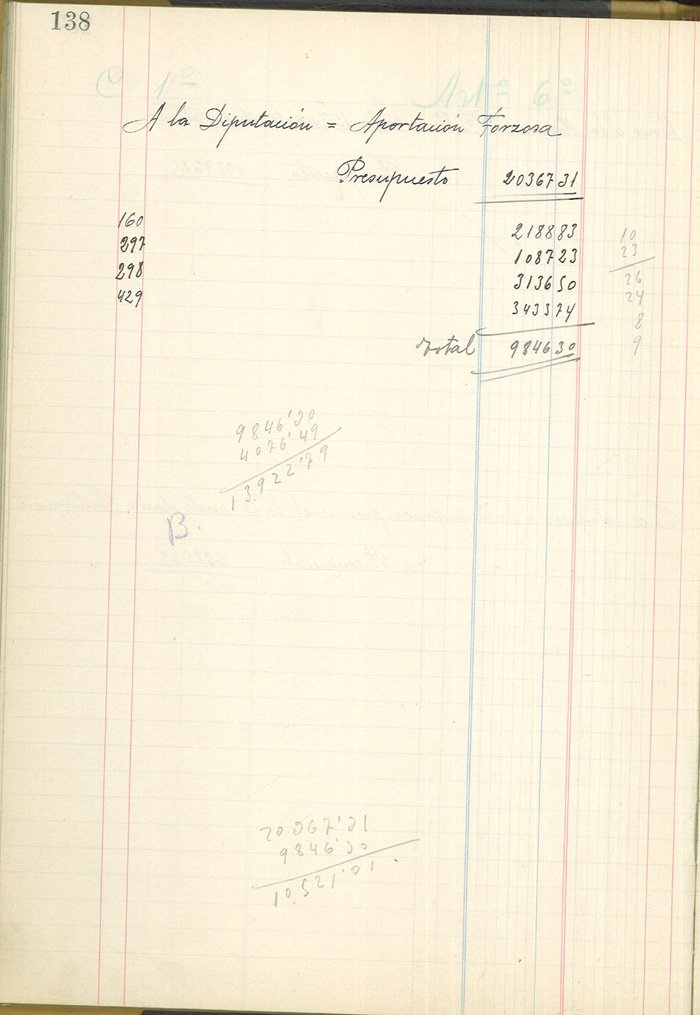 138
C 1º Artº 6º
A la Diputación = Aportación Forzosa
Presupuesto 2036731
160 218883
297 108723
298 313650
429 343374
Total 984630
10
23
26
24
8
9
9846'30
4076'49
13.922'79
B.
Presupuesto
20367'31
9846'30
10.521'01.